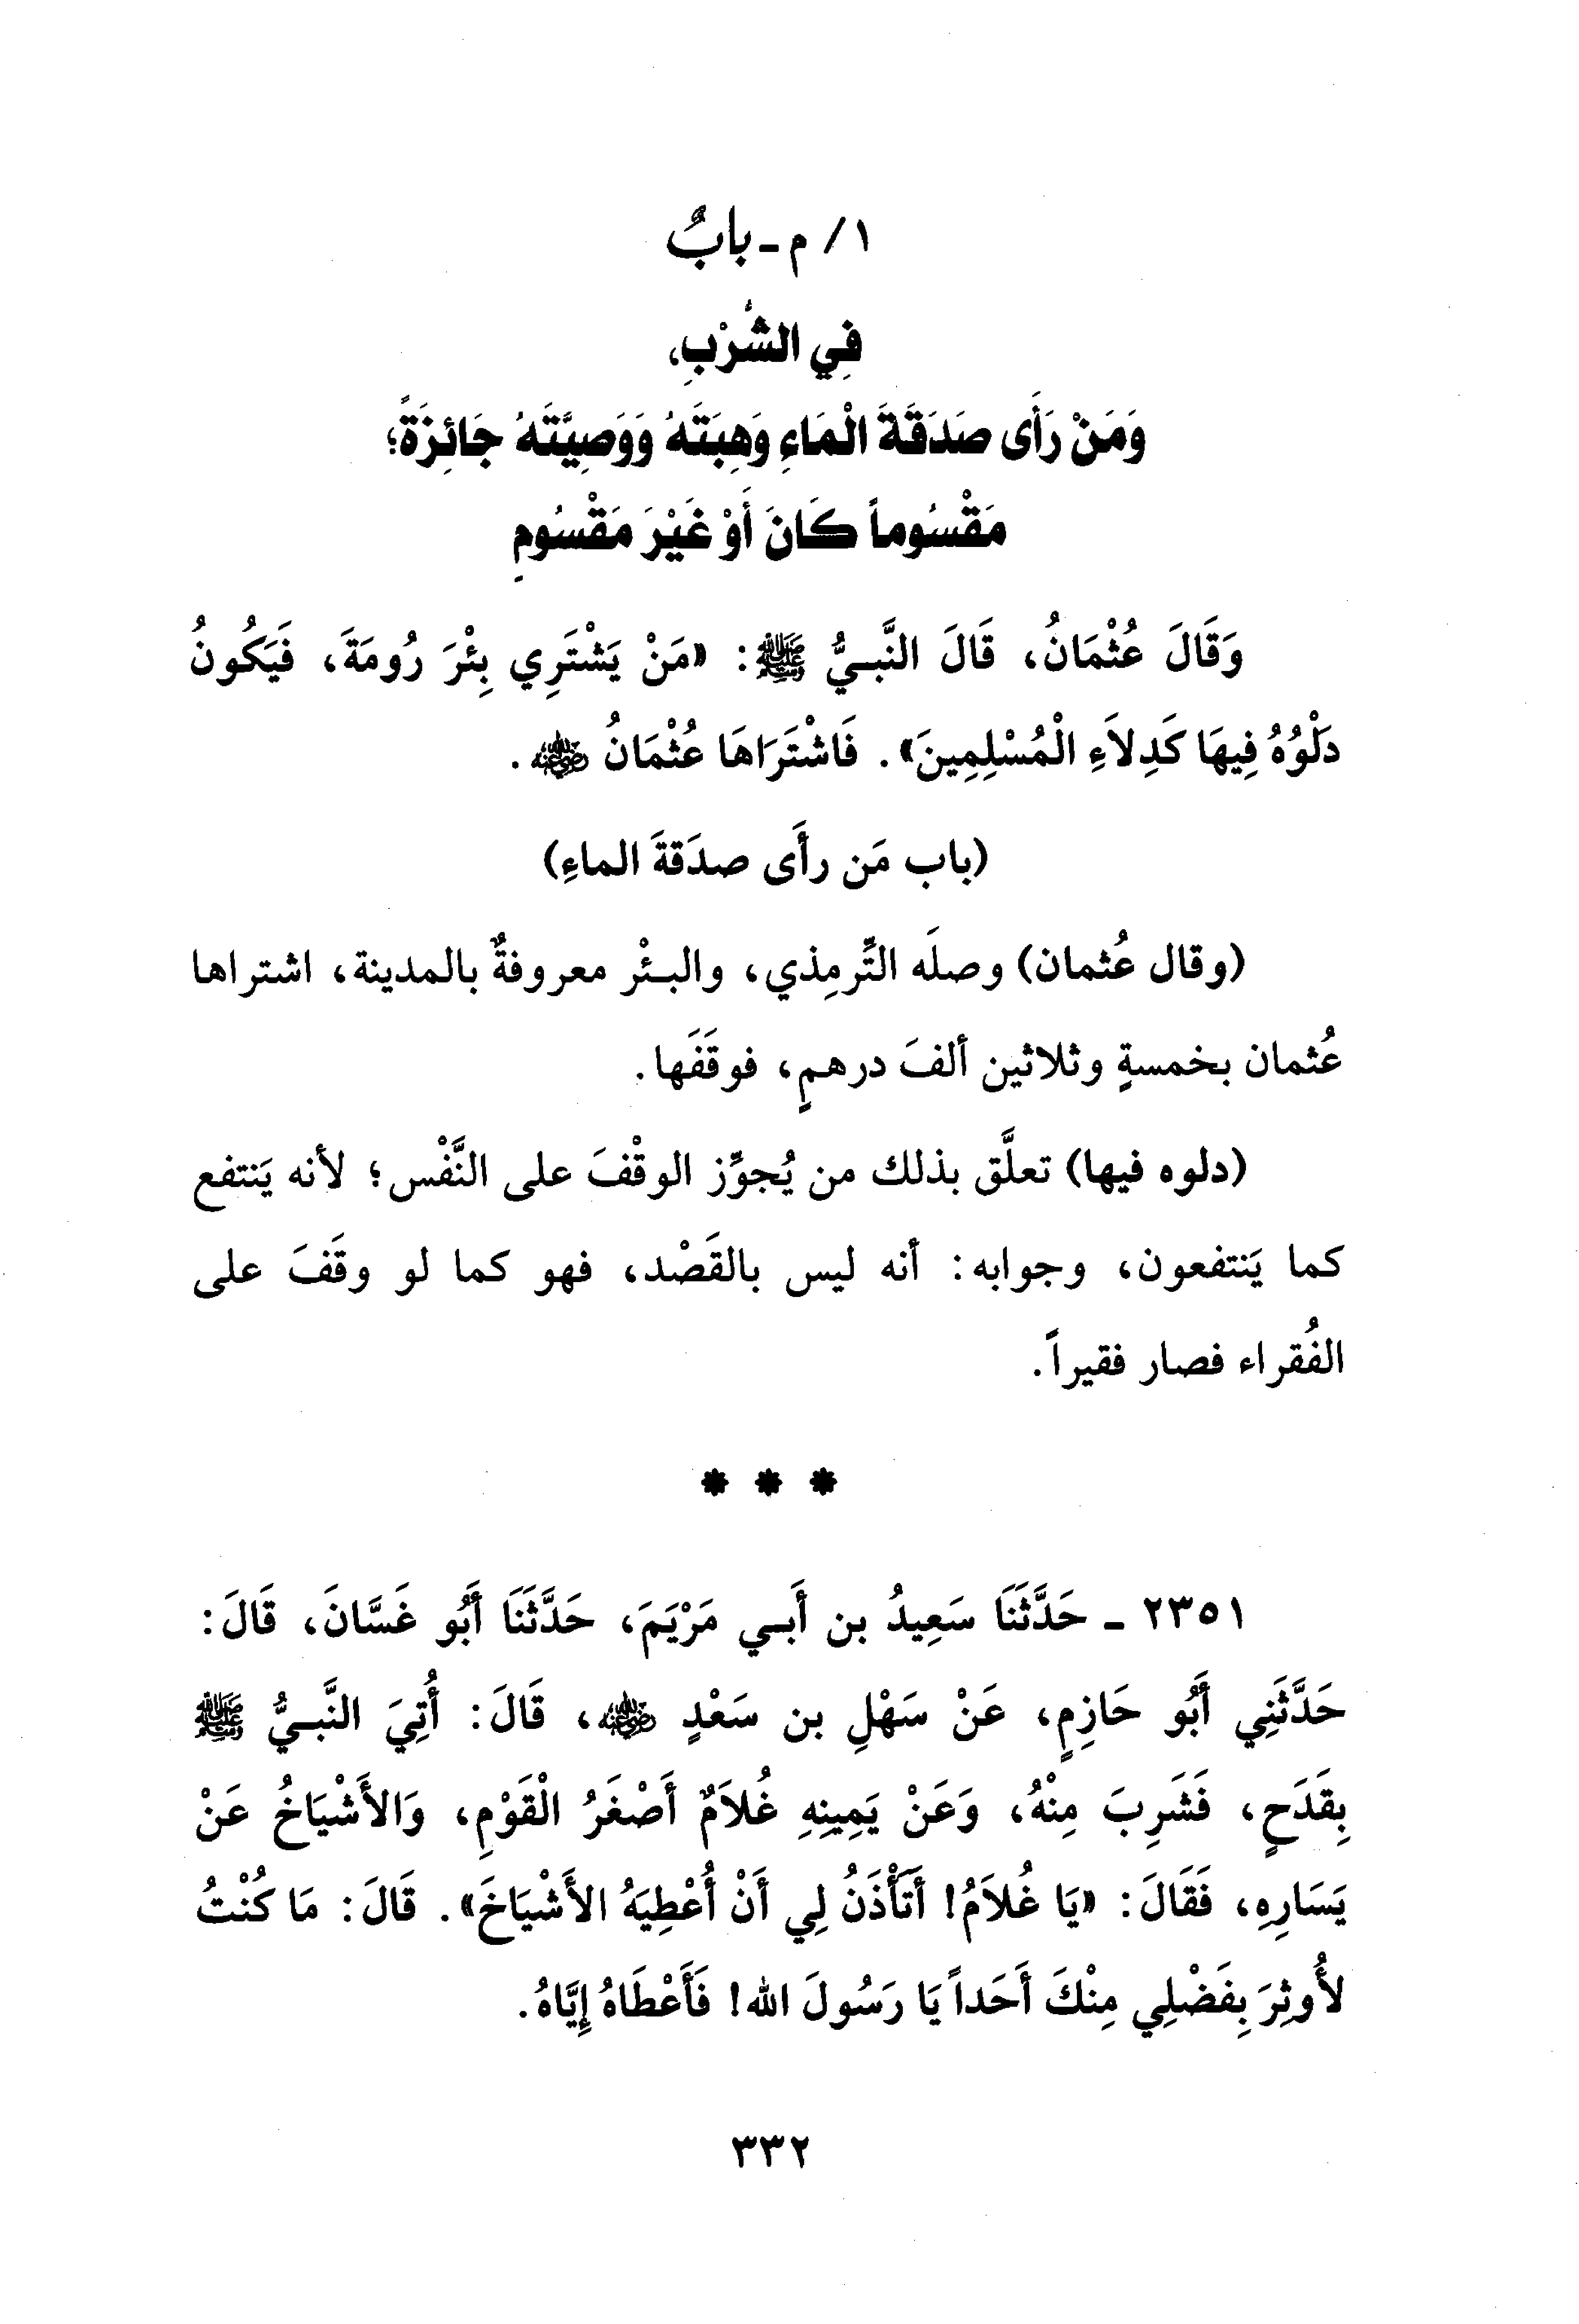 ١/ م - بابٌ
فِي الشُّرْبِ،
وَمَنْ رَأَى صَدَقَةَ الْمَاءِ وَهِبَتَهُ وَوَصِيَّتَهُ جَائِزَةً؛
مَقْسُوماً كَانَ أَوْ غَيْرَ مَقْسُومٍ
وَقَالَ عُثْمَانُ، قَالَ النَّبِيُّ ﷺ: «مَنْ يَشْتَرِي بِئْرَ رُومَةَ، فَيَكُونُ
دَلْوُهُ فِيهَا كَدِلاَءِ الْمُسْلِمِينَ». فَاشْتَرَاهَا عُثْمَانُ رضي الله عنه.
(باب مَن رأَى صدَقةَ الماءِ)
(وقال عُثمان) وصلَه التِّرمِذي، والبئْر معروفةٌ بالمدينة، اشتراها
عُثمان بخمسةٍ وثلاثين ألفَ درهمٍ، فوقَفَها.
(دلوه فيها) تعلَّق بذلك من يُجوِّز الوقْفَ على النَّفْس؛ لأنه يَنتفع
كما يَنتفعون، وجوابه: أنه ليس بالقَصْد، فهو كما لو وقَفَ على
الفُقراء فصار فقيراً.
* * *
٢٣٥١ - حَدَّثَنَا سَعِيدُ بن أَبي مَرْيَمَ، حَدَّثَنَا أَبُو غَسَّانَ، قَالَ:
حَدَّثَنِي أَبُو حَازِمٍ، عَنْ سَهْلِ بن سَعْدٍ رضي الله عنه، قَالَ: أُتِيَ النَّبيُّ ﷺ
بِقَدَحٍ، فَشَرِبَ مِنْهُ، وَعَنْ يَمِينِهِ غُلاَمٌ أَصْغَرُ الْقَوْمِ، وَالأَشْيَاخُ عَنْ
يَسَارِهِ، فَقَالَ: «يَا غُلاَمُ! أَتَأْذَنُ لِي أَنْ أُعْطِيَهُ الأَشْيَاخَ». قَالَ: مَا كُنْتُ
لأُوثِرَ بِفَضْلِي مِنْكَ أَحَداً يَا رَسُولَ الله! فَأَعْطَاهُ إِيَّاهُ.
٣٣٢